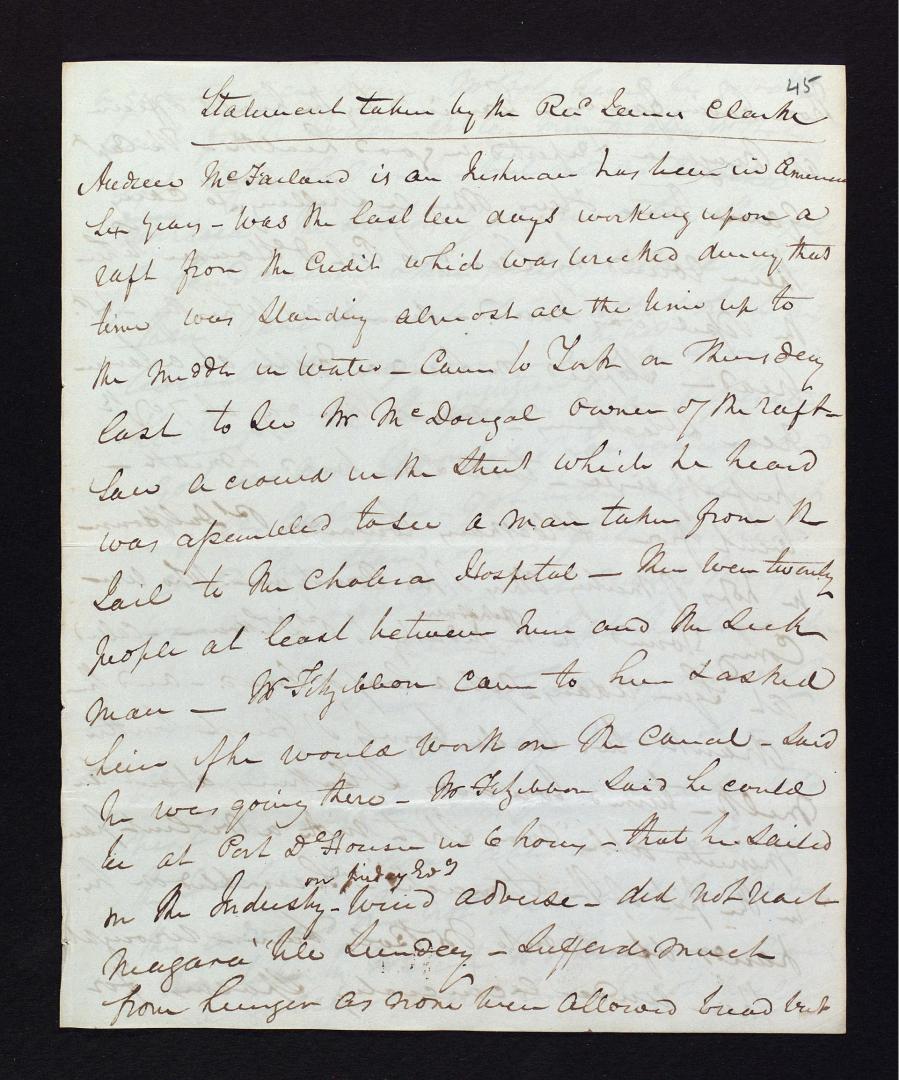 45
Statement taken by the Revd James Clarke
Andrew McFarland is an Irishman has been in America
Six years - was the last ten days working upon a
raft from the Credit which was wrecked during that
time was standing almost all the time up to
the middle in water - Came to York on Thursday
last to See Mr McDougal owner of the raft -
Saw a crowd in the Street which he heard
was assembled to see a man taken from the
Jail to the Cholera Hospital - there were twenty
people at least between him and the Sick
man - Mr Fitzgibbon came to him & asked
him if he would work on the Canal - Said
he was going there - Mr Fitzgibbon Said he could
be at Port D'Housie in 6 hours - that he Sailed
on friday Evg
in the Industry - Wind adverse - did not reach
Niagara 'till Sunday - Sufferd much
from hunger as none were allowed bread but